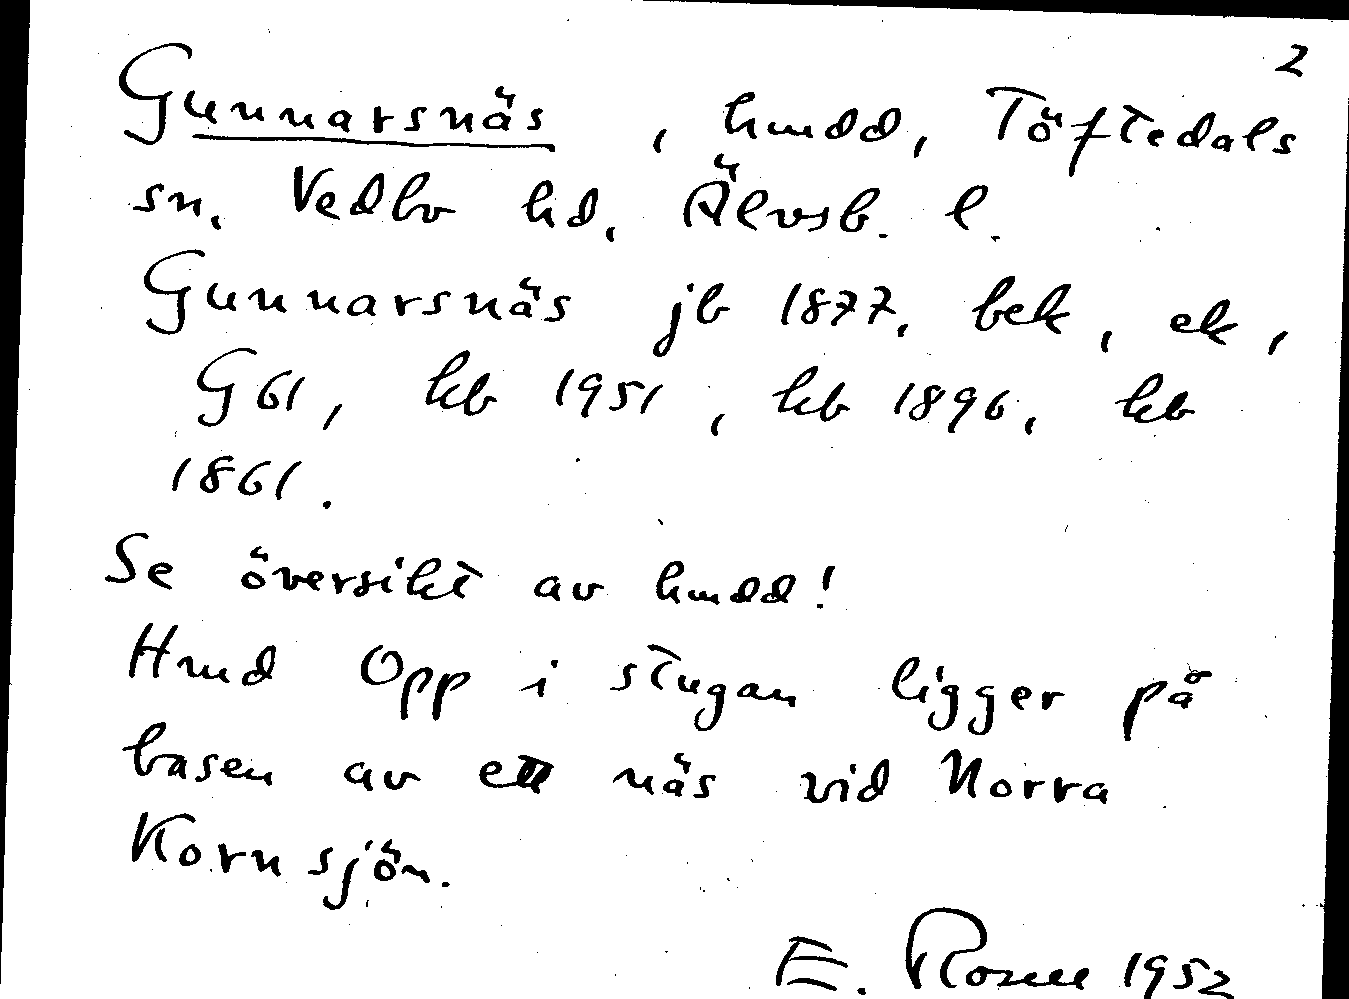 2
Gunnarsnäs, hmdd, Töftedals
sn, Vedbo hd, Älvsb. l.
Gunnarsnäs jb 1877, bek, ek,
G 61, kb 1951, kb 1896, kb
1861.
Se översikt av hmdd!
Hmd Opp i stugan ligger på
basen av ett näs vid Norra
Kornsjön.
E. Rosell 1952